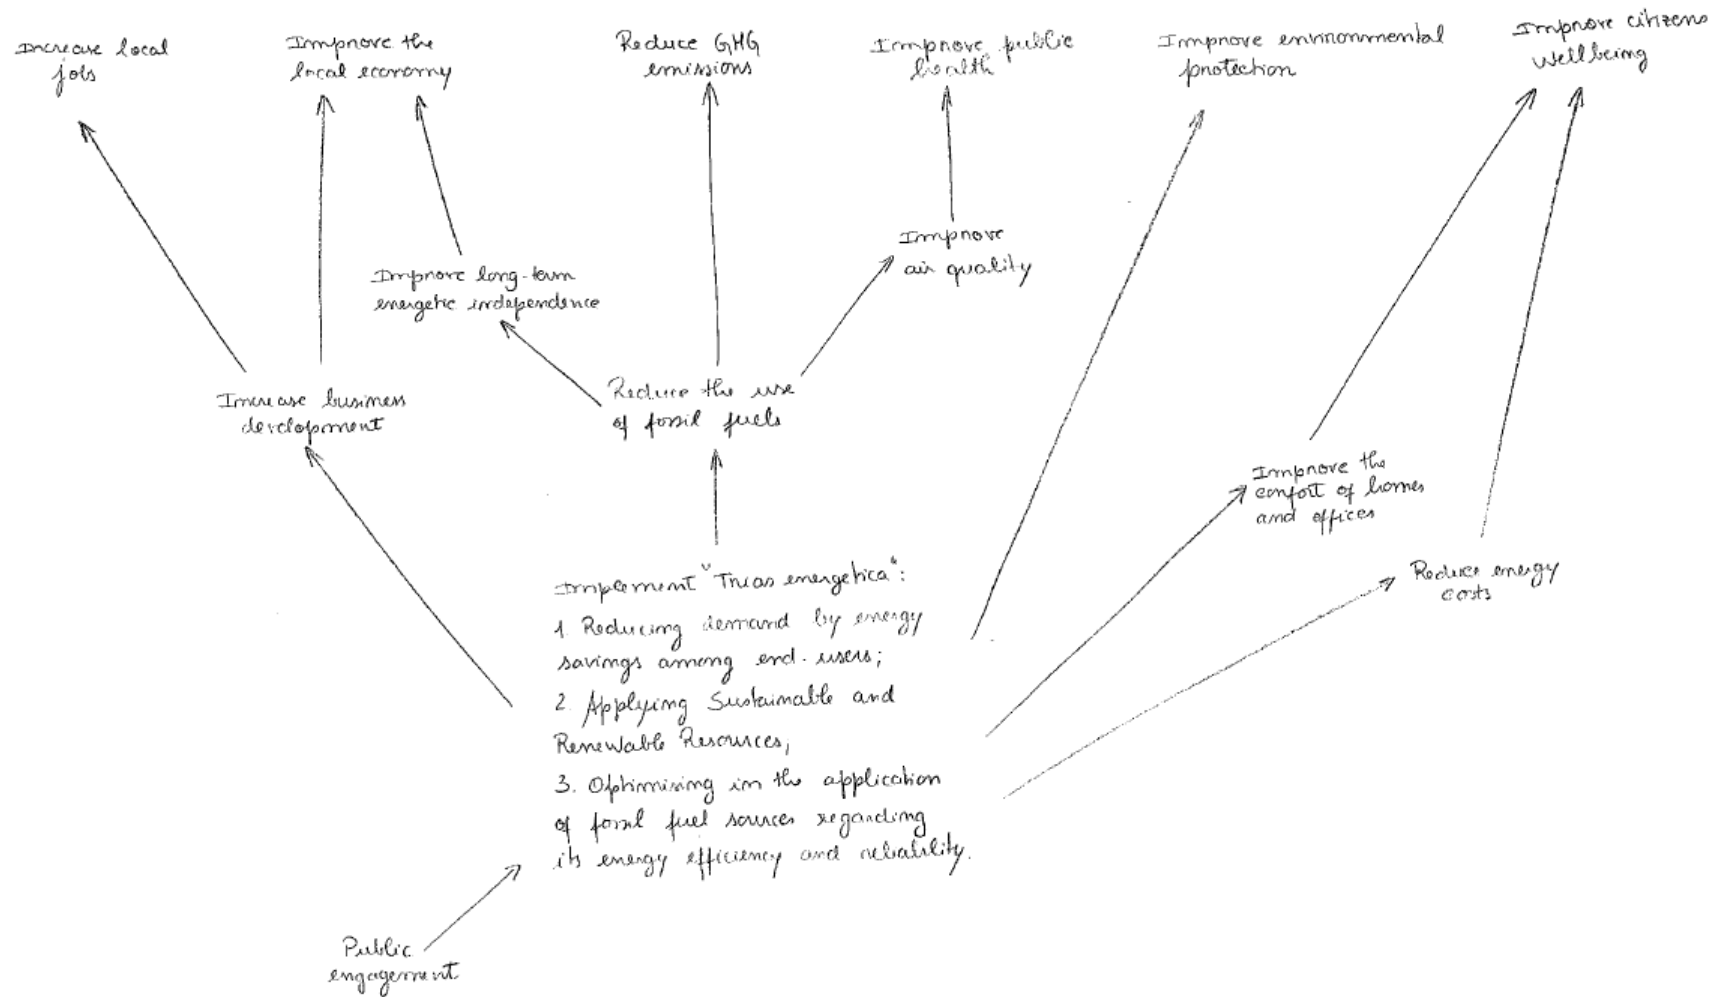 Increase local
jobs
Improve the
local economy
Reduce GHG
emissions
Improve public
health
Improve environmental
protection
Improve citizens
wellbeing
Improve
air quality
Improve long-term
energetic independence
Increase business
development
Reduce the use
of fossil fuels
Improve the
confort of homes
and offices
Reduce energy
costs
Implement "Trias energetica":
1 Reducing demand by energy
savings among end-users;
2. Applying Sustainable and
Renewable Resources;
3. Optimising in the application
of fossil fuel sources regarding
its energy efficiency and reliability.
Public
engagement